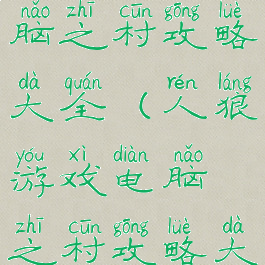 nǎo zhī cūn gōng lüè
脑之村攻略
dà quán rén láng
大全（人狼
yóu xì diàn nǎo
游戏电脑
zhī cūn gōng lüè dà
之村攻略大